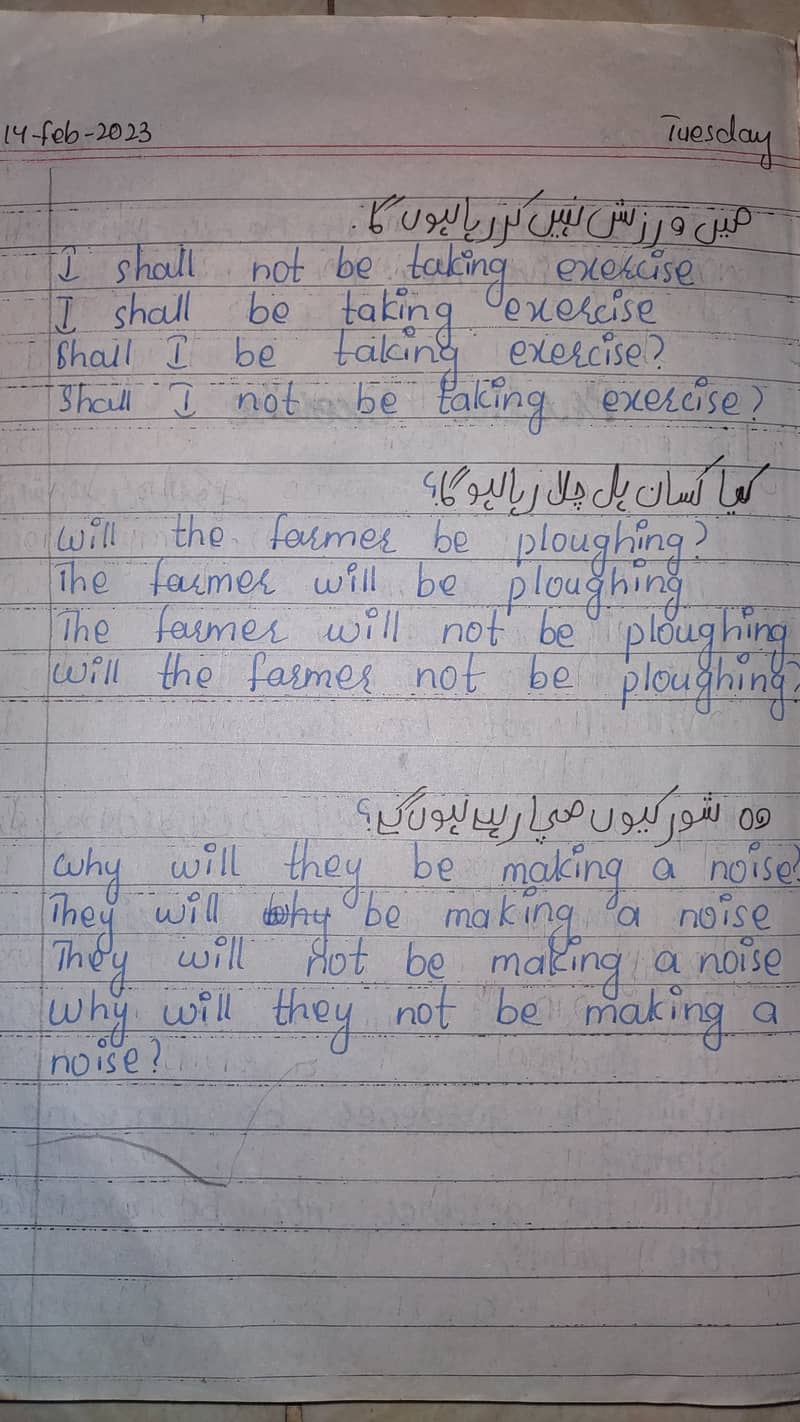 14-feb-2023 Tuesday
میں ورزش نہیں کر رہا ہوں گا.
I shall not be taking exercise
I shall be taking exercise
Shall I be taking exercise?
Shall I not be taking exercise?
کیا کسان ہل چلا رہا ہو گا؟
Will the farmer be ploughing?
The farmer will be ploughing
The farmer will not be ploughing
Will the farmer not be ploughing?
وہ شور کیوں مچا رہے ہوں گے؟
Why will they be making a noise?
They will why be making a noise
They will not be making a noise
Why will they not be making a
noise?